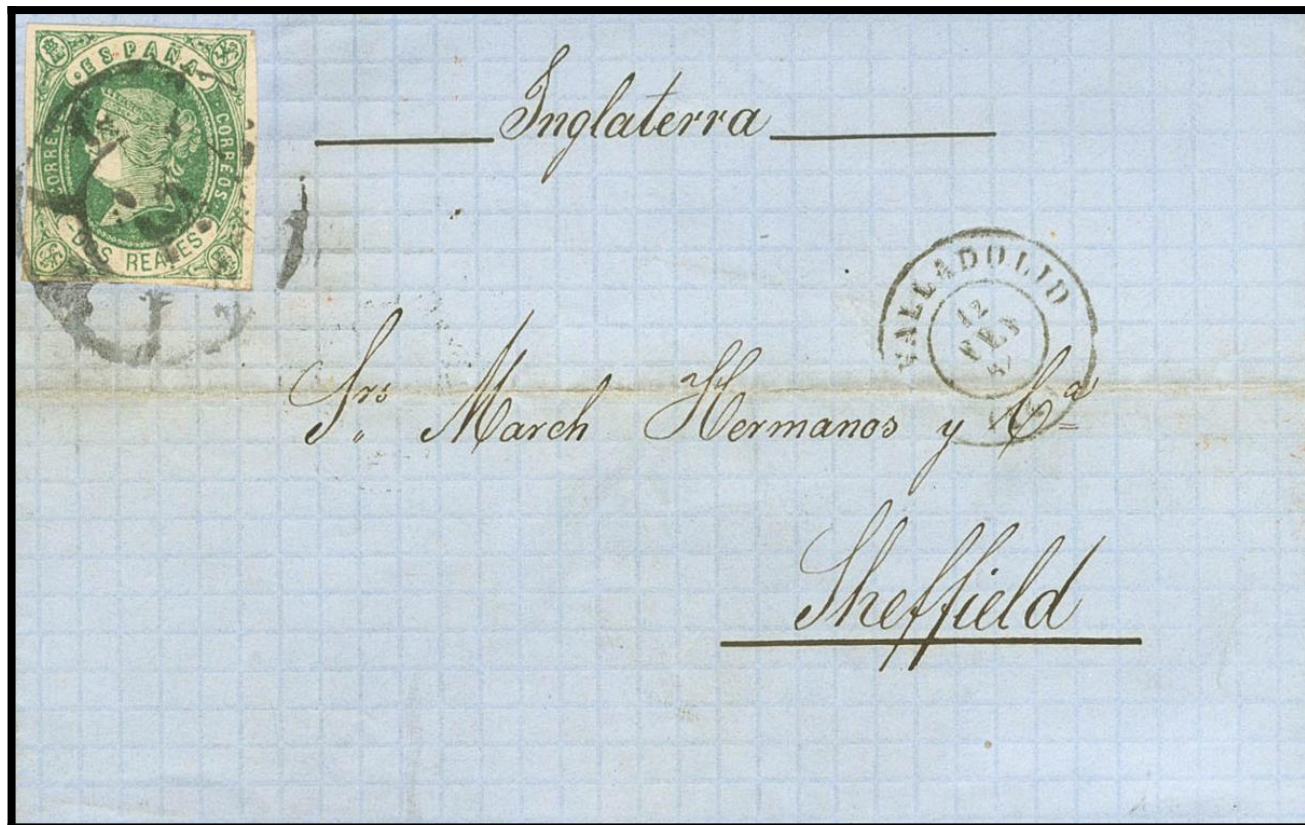 ESPAÑA
CORREOS
CORREOS
DOS REALES
Inglaterra
VALLADOLID
12
FEB
Srs March Hermanos y Cª
Sheffield